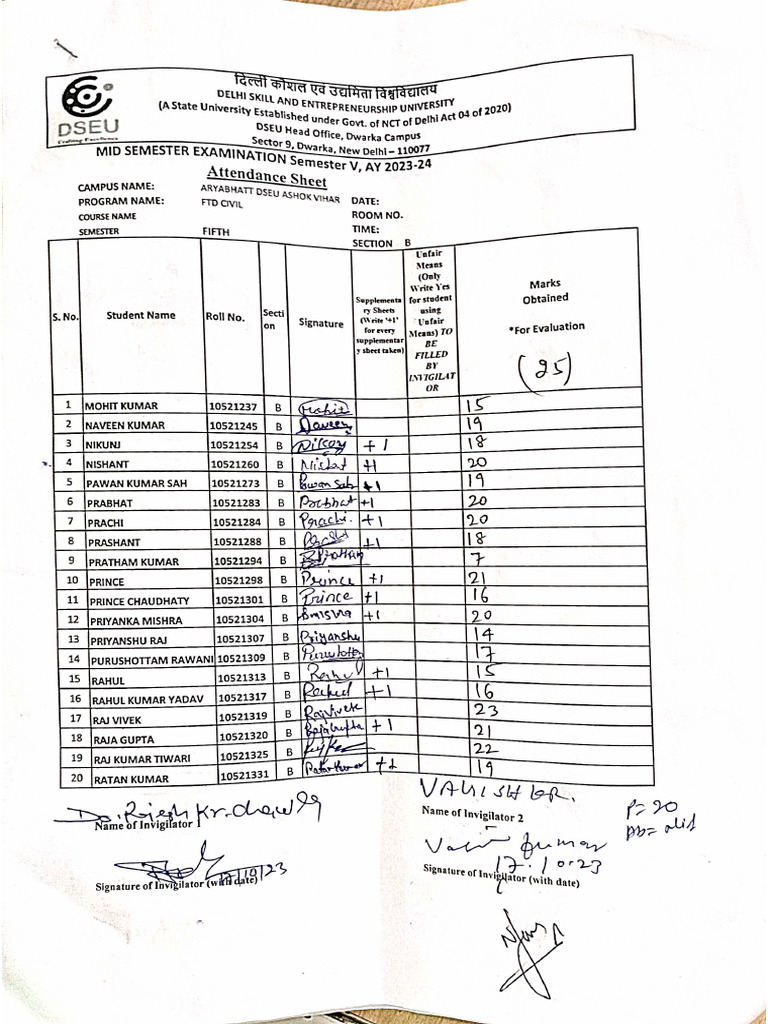 दिल्ली कौशल एवं उद्यमिता विश्वविद्यालय
DELHI SKILL AND ENTREPRENEURSHIP UNIVERSITY
(A State University Established under Govt. of NCT of Delhi Act 04 of 2020)
DSEU Head Office, Dwarka Campus
Sector 9, Dwarka, New Delhi – 110077
DSEU
MID SEMESTER EXAMINATION Semester V, AY 2023-24
Attendance Sheet
CAMPUS NAME: ARYABHATT DSEU ASHOK VIHAR DATE:
PROGRAM NAME: FTD CIVIL ROOM NO.
COURSE NAME TIME:
SEMESTER FIFTH SECTION B
S. No. Student Name Roll No. Secti on Signature Supplementa ry Sheets (Write '+1' for every supplementar y sheet taken) Unfair Means (Only Write Yes for student using Unfair Means) TO BE FILLED BY INVIGILAT OR Marks Obtained *For Evaluation (25)
1 MOHIT KUMAR 10521237 B Mohit 15
2 NAVEEN KUMAR 10521245 B Naveen 19
3 NIKUNJ 10521254 B +1 18
4 NISHANT 10521260 B +1 20
5 PAWAN KUMAR SAH 10521273 B Pawan Sah +1 19
6 PRABHAT 10521283 B Prabhat +1 20
7 PRACHI 10521284 B Prachi. +1 20
8 PRASHANT 10521288 B +1 18
9 PRATHAM KUMAR 10521294 B Pratham 7
10 PRINCE 10521298 B Prince +1 21
11 PRINCE CHAUDHATY 10521301 B Prince +1 16
12 PRIYANKA MISHRA 10521304 B +1 20
13 PRIYANSHU RAJ 10521307 B Priyanshu 14
14 PURUSHOTTAM RAWANI 10521309 B 17
15 RAHUL 10521313 B +1 15
16 RAHUL KUMAR YADAV 10521317 B Rahul +1 16
17 RAJ VIVEK 10521319 B Rajvivek 23
18 RAJA GUPTA 10521320 B Rajagupta +1 21
19 RAJ KUMAR TIWARI 10521325 B 22
20 RATAN KUMAR 10521331 B Ratan Kumar +1 19
Name of Invigilator 1
17/10/23
Signature of Invigilator (with date)
Name of Invigilator 2
P=20
17.10.23
Signature of Invigilator (with date)